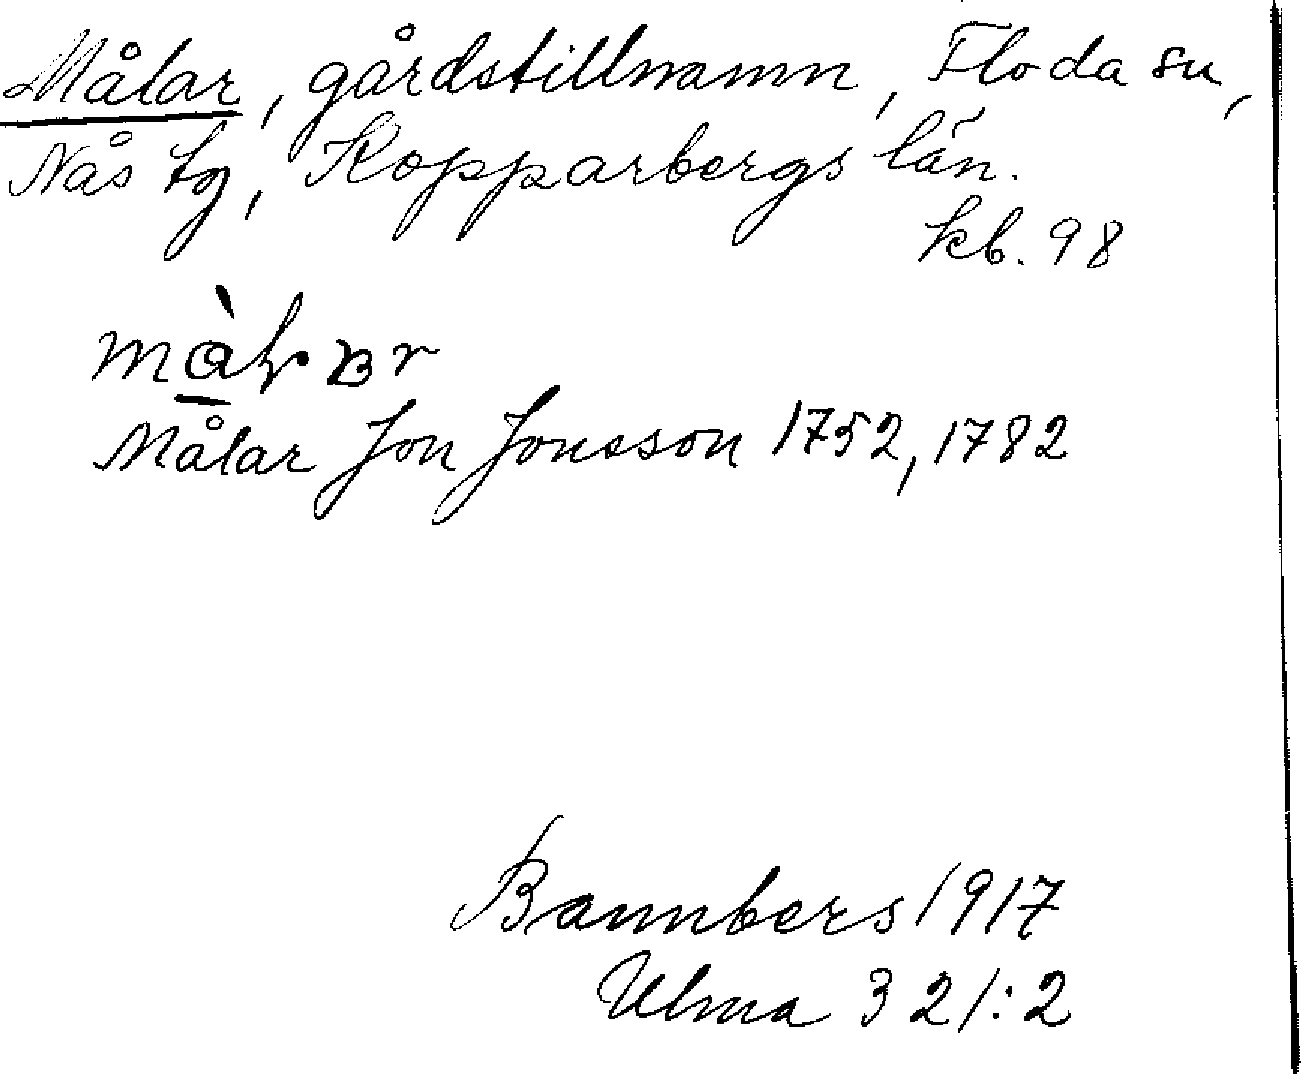 Målar, gårdstillnamn, Floda sn,
Nås tg, Kopparbergs län.
kb. 98
Målar Jon Jonsson 1752, 1782
Bannbers 1917
Ulma 321:2